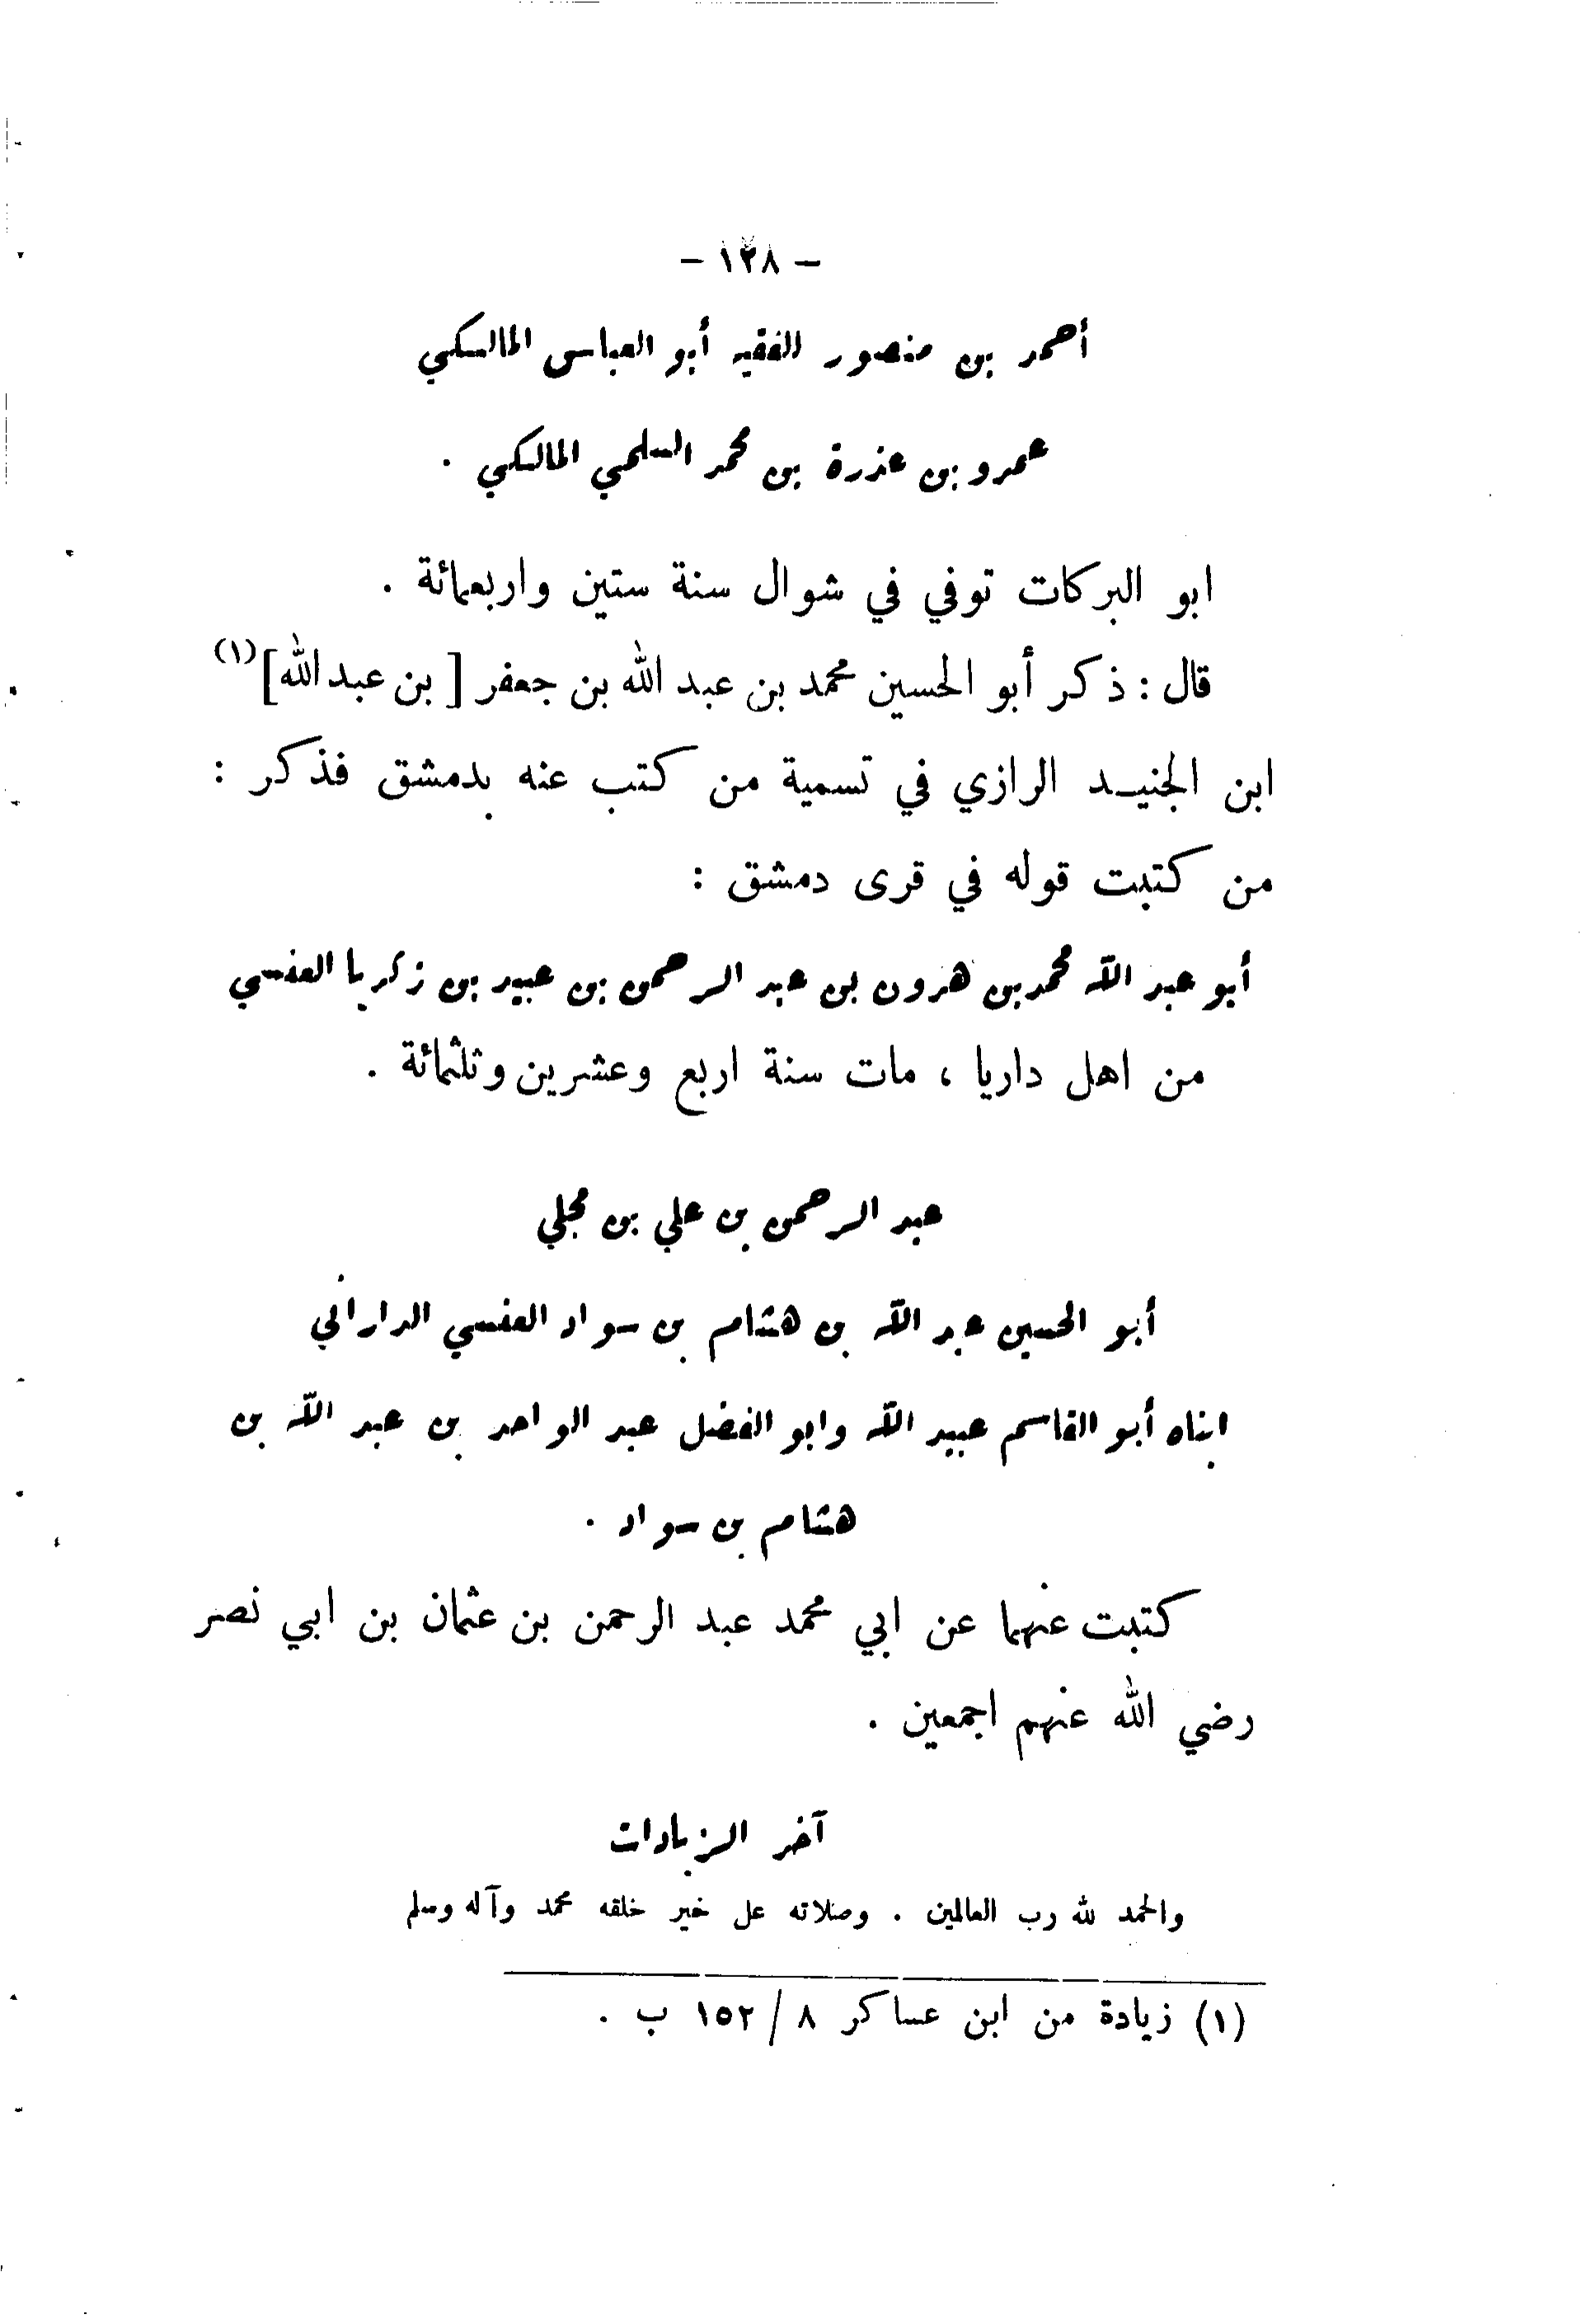 - ١٢٨ -
أحمد بن منصور الفقيه أبو العباس المالكي
عمرو بن عذرة بن محمد السلمي المالكي .
ابو البركات توفي في شوال سنة ستين واربعمائة .
قال : ذكر أبو الحسين محمد بن عبد الله بن جعفر [ بن عبد الله ] (١)
ابن الجنيد الرازي في تسمية من كتب عنه بدمشق فذكر :
من كتبت قوله في قرى دمشق :
أبو عبد الله محمد بن هرون بن عبد الرحمن بن عبيد بن زكريا العنسي
من اهل داريا ، مات سنة اربع وعشرين وثلثمائة .
عبد الرحمن بن علي بن مجلي
أبو الحسين عبد الله بن هشام بن سواد العنسي الداراني
ابناه أبو القاسم عبيد الله وابو الفضل عبد الواحد بن عبد الله بن
هشام بن سواد .
كتبت عنهما عن ابي محمد عبد الرحمن بن عثمان بن ابي نصر
رضي الله عنهم اجمعين .
آخر الزيادات
والحمد لله رب العالمين . وصلاته على خير خلقه محمد وآله وسلم
(١) زيادة من ابن عساكر ٨ / ١٥٢ ب .